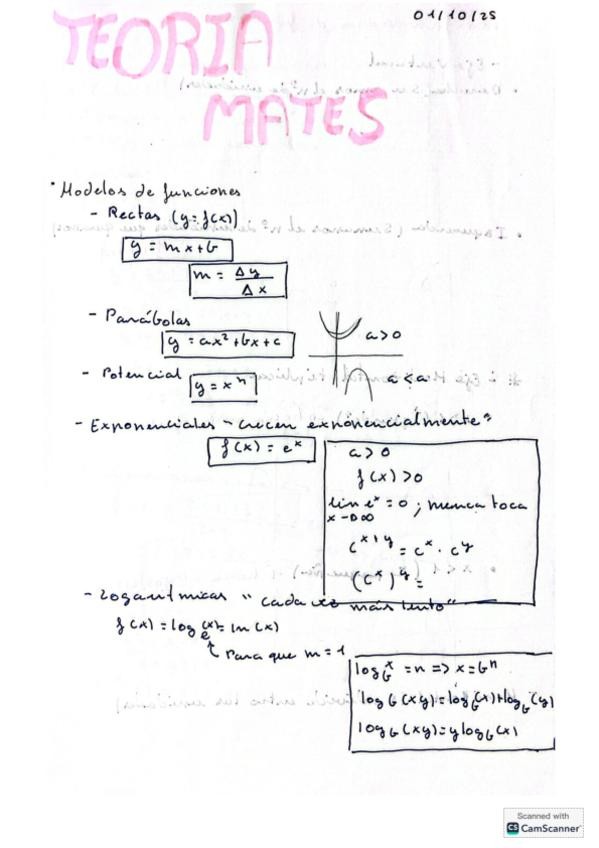 01/10/25
TEORIA
MATES
· Modelos de funciones
- Rectas (y=f(x))
y = mx+b
m = Δy/Δx
- Parábolas
y = ax²+bx+c
a>0
- Potencial
y = xⁿ
a<a
- Exponenciales - "crecen exponencialmente"
f(x) = eˣ
a>0
f(x)>0
lim eˣ = 0 ; nunca toca
x→-∞
cˣ⁺ʸ = cˣ · cʸ
(cˣ)ʸ =
- Logarítmicas "cada vez más lento"
f(x) = logₑ(x) = ln(x)
para que m=1
log_b x = n => x = bⁿ
log_b (xy) = log_b(x)+log_b(y)
log_b (xy) = y log_b (x)
Scanned with
CS CamScanner